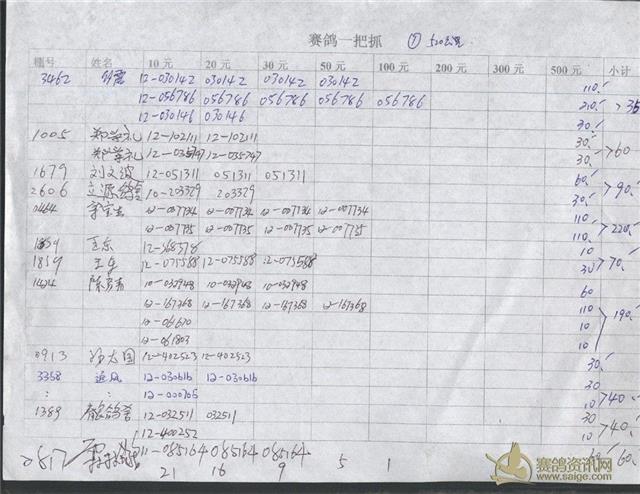 赛鸽一把抓 ① 520公里
棚号 姓名 10元 20元 30元 50元 100元 200元 300元 500元 小计
3462 12-030142 030142 030142 030142 110.-
12-056786 056786 056786 056786 056786 210.-
12-030146 030146 30.-
1005 12-102111 12-102111 30.-
12-035747 12-035747 30.- >60
1679 刘文波 12-051311 051311 051311 60.-
2606 10-203329 203329 30.- >90.-
0464 12-007734 12-007734 12-007734 12-007734 110.-
12-007735 12-007735 12-007735 12-007735 110.- >220.-
1859 王东 12-10
1859 王东 12-075588 12-075588 12-075588 60 >70.-
1424 10-032948 10-032948 10-032948 60
12-167368 12-167368 12-167368 12-167368 110
12-061670 10 >190.-
12-061803 10
0913 12-402523 12-402523 30.-
3358 追风 12-030616 12-030616 30.-
: : 12-000705 10 >40.-
1389 12-032511 032511 30
12-400252 10 >40.-
0817 11-085164 085164 085164 60.-
21 16 9 5 1
赛鸽资讯网
www.saige.com